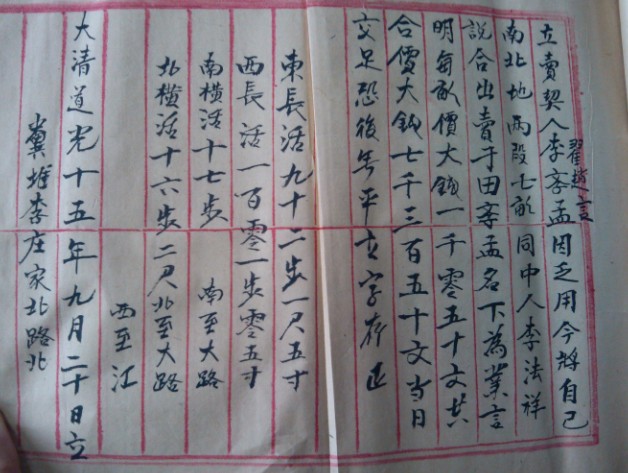 立賣契人李齊孟因乏用今將自己
翟趙言
南北地兩段七畝同中人李法祥
說合出賣于田齊孟名下為業言
明每畝價大錢一千零五十文共
合價大錢七千三百五十文當日
交足恐後無平立字存正
東長活九十二步一尺五寸
西長活一百零一步零五寸
南橫活十七步 南至大路
北橫活十六步二尺北至大路
西至江
大清道光十五年九月二十日立
糞堆李庄家北路北